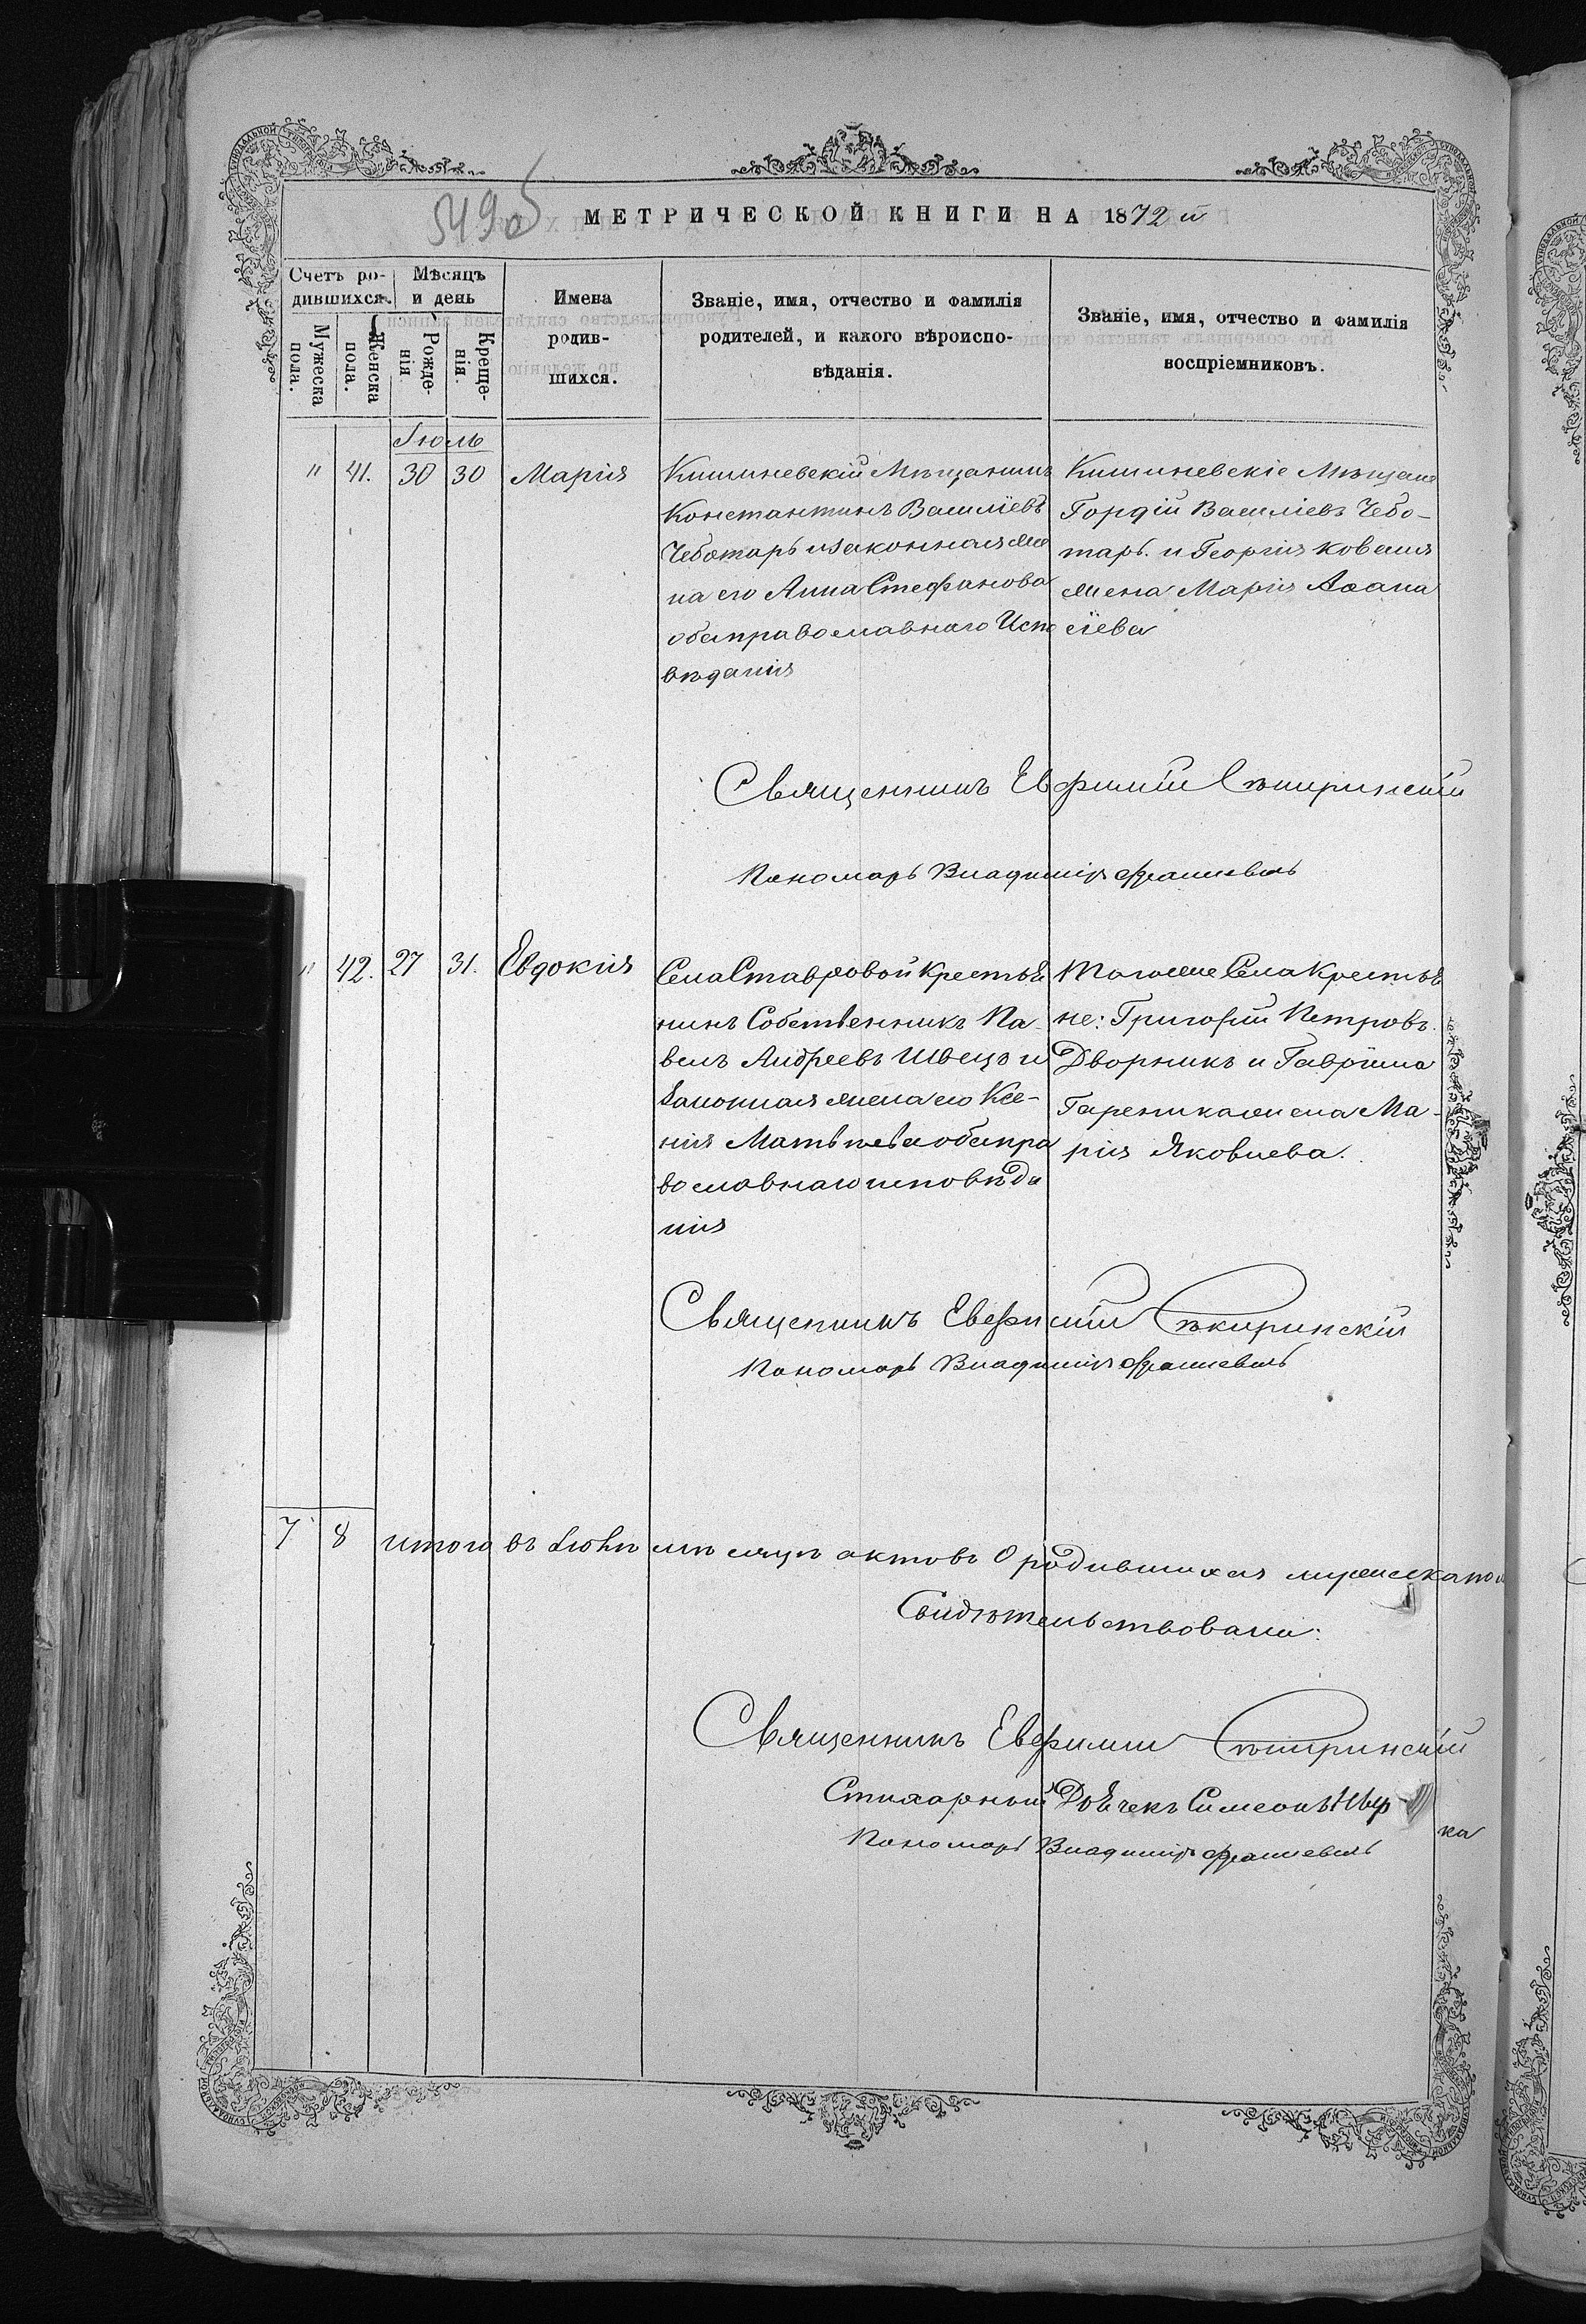 549об
МЕТРИЧЕСКОЙ КНИГИ НА 1872 й
Счетъ ро-
дившихся.
Мужеска пола.
Женска пола.
Мѣсяцъ
и день
Рожде-
нія.
Креще-
нія.
Имена
родив-
шихся.
Званіе, имя, отчество и фамилія
родителей, и какого вѣроиспо-
вѣданія.
Званіе, имя, отчество и фамилія
воспріемниковъ.
Іюль
" 41. 30 30 Марія
Кишиневскій Мѣщанинъ
Константинъ Василіевъ
Чеботарь и законная же
на его Анна Стефанова
оба православнаго Испо
вѣданія
Кишиневскіе Мѣщане
Гордій Василіевъ Чебо-
тарь. и Георгія Коваля
жена Марія Аѳана
сіева
Священникъ Евфимій Сѣкиринскій
Пономарь Владимір
" 42. 27 31. Евдокія
Села Ставровой Крестья
нинъ Собственникъ Па-
велъ Андреевъ Швецъ и
Законная жена его Ксе-
нія Матвѣева оба пра
вославнаго исповѣда
нія
Тогоже Села Крестья
не: Григорій Петровъ
Дворникъ и Гавріила
жена Ма-
рія Яковлева.
Священникъ Евфимій Сѣкиринскій
Пономарь Владимір
7 8 итого въ Іюлѣ мѣсяцѣ актовъ о родившихся мужеска пол
Свидѣтельствовали:
Священникъ Евфимій Сѣкиринскій
Стихарный Дьячекъ Симеонъ
ка
Пономарь Владимір